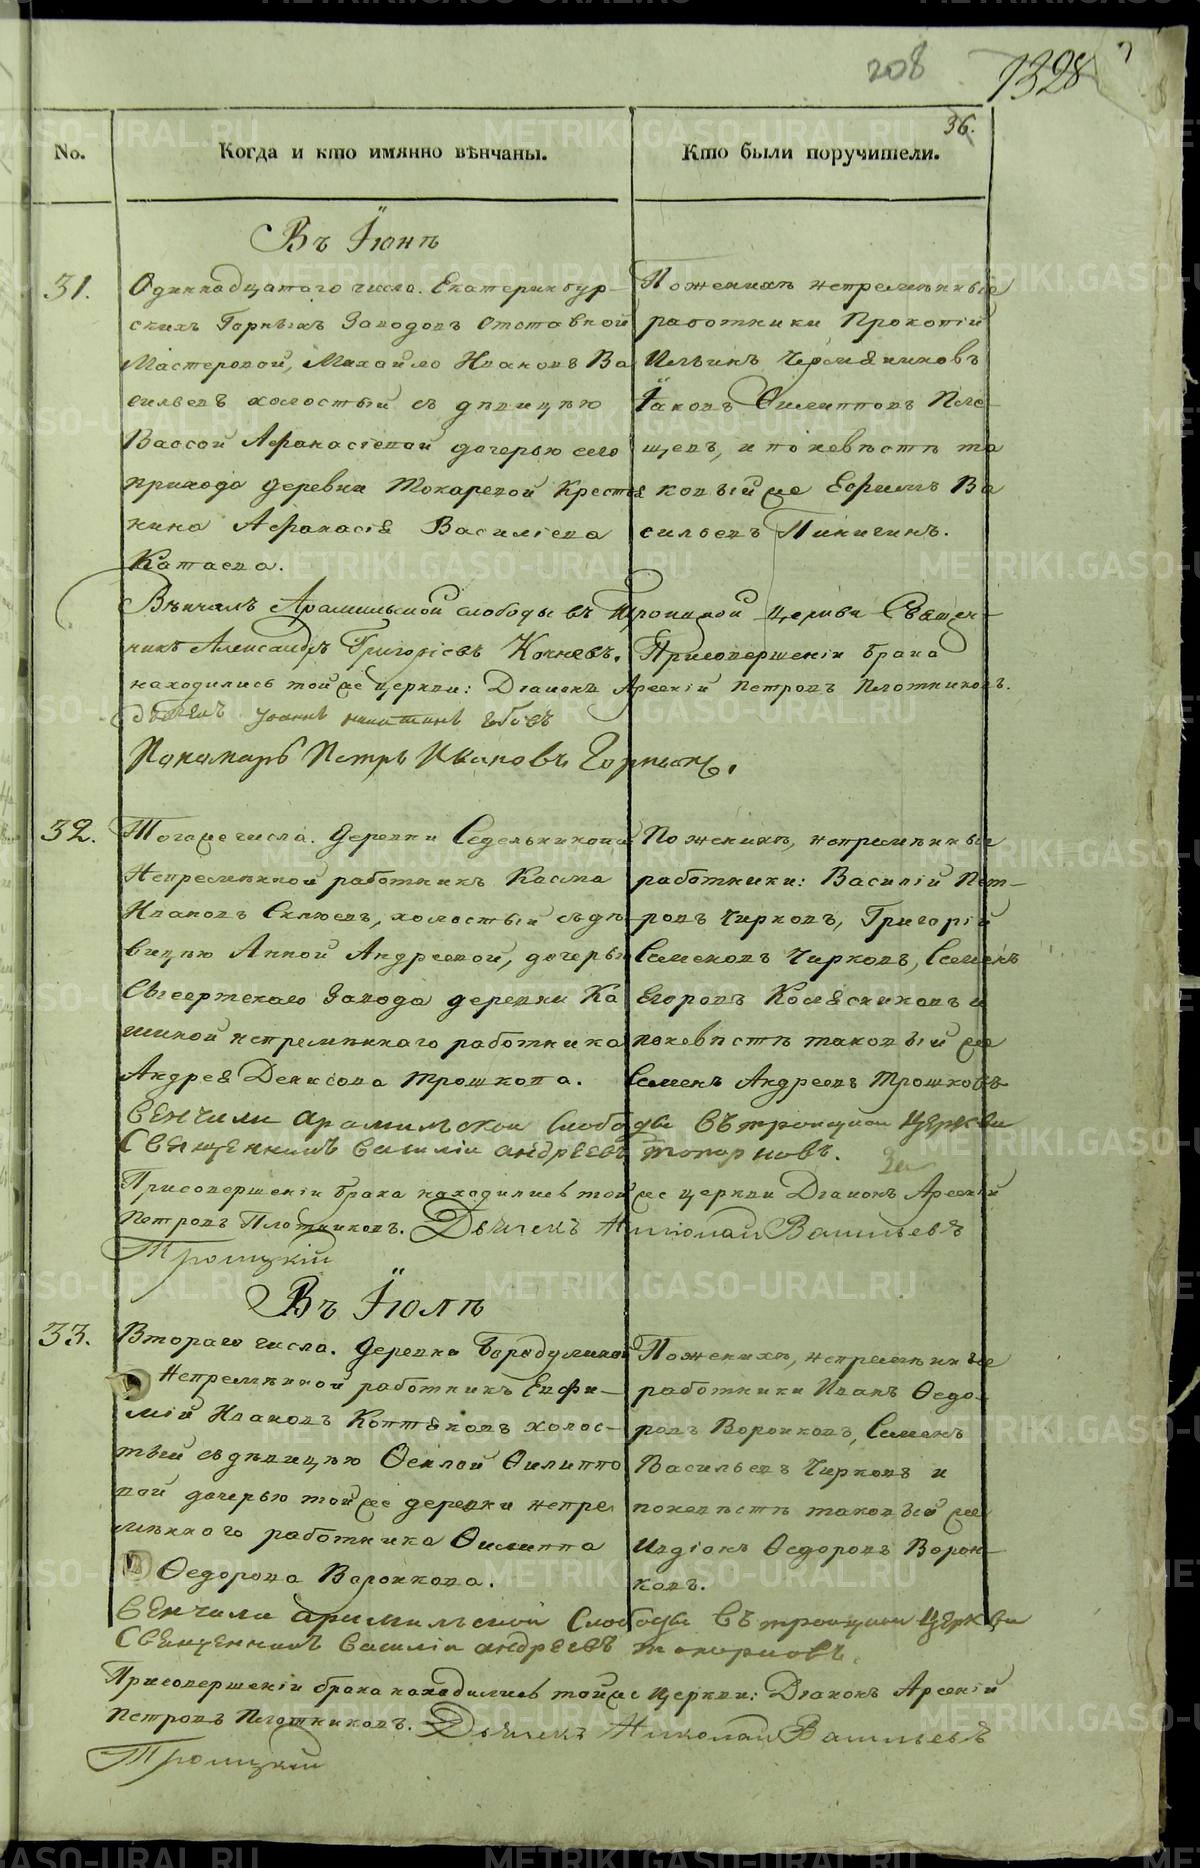 208
1328
36.
No.
Когда и кто имянно вѣнчаны.
Кто были поручители.
Въ Іюнѣ
31.
Одиннадцатого числа. Екатеринбур-
скихъ Горныхъ Заводовъ Отставной
Мастеровой, Михайло Ивановъ Ва
сильевъ холостый съ дѣвицею
Вассой Афанасіевой дочерью сего
прихода деревни Токаревой Кресть
янина Афанасія Василіева
Катаева.
По женихѣ непремѣнные
работники Прокопій
Ильинъ Черемѣниковъ
Іаковъ Филипповъ Пле-
щевъ, и по невѣстѣ та
ковый же Ефимъ Ва
сильевъ Пиничинъ.
Вѣнчалъ Арамильской слободы въ Троицкой церкви Священ-
никъ Александръ Григорiевъ Коневъ. При совершеніи брака
находились той же церкви: Діаконъ Арсеній Петровъ Плотниковъ.
Пономарь Петръ Ивановъ
32.
Того же числа. Деревни Седельниковой
Непремѣнной работникъ Касма
Ивановъ Склюевъ, холостый съ дѣ
вицею Анной Андреевой, дочерью
Сысертскаго Завода деревни Ка
шиной непремѣннаго работника
Андрея Денисова Трошкова.
По женихѣ, непремѣнные
работники: Василій Пет-
ровъ Чирковъ, Григорій
Семеновъ Чирковъ, Семенъ
Егоровъ Колѣсниковъ и
по невѣстѣ таковый же
Семенъ Андреевъ Трошковъ
венчали арамильской слободы въ троицкои церкви
Священникъ василіи андреевъ топорковъ.
При совершеніи брака находились той же церкви Діаконъ Арсеній
Петровъ Плотниковъ. Дьячекъ Николаи Васильевъ
Троицкій
Въ Іюлѣ
33.
Втораго числа. Деревни Бородулиной
Непремѣнной работникъ Евфи-
мій Ивановъ Коптяковъ холос-
тый съ дѣвицею Феклой Филиппо
вой дочерью той же деревни непре
мѣнного работника Филиппа
Федорова Воронкова.
По женихѣ, непремѣнные
работники Иванъ Федо-
ровъ Воронковъ, Семенъ
Васильевъ Чирковъ и
по невѣстѣ таковый же
Федоровъ Ворон-
ковъ.
венчали арамильской Слободы въ троицкои церкви
Священникъ василіи андреевъ топорковъ.
При совершеніи брака находились той же церкви: Діаконъ Арсеній
Петровъ Плотниковъ. Дьячекъ Николаи Васильевъ
Троицкій
METRIKI.GASO-URAL.RU